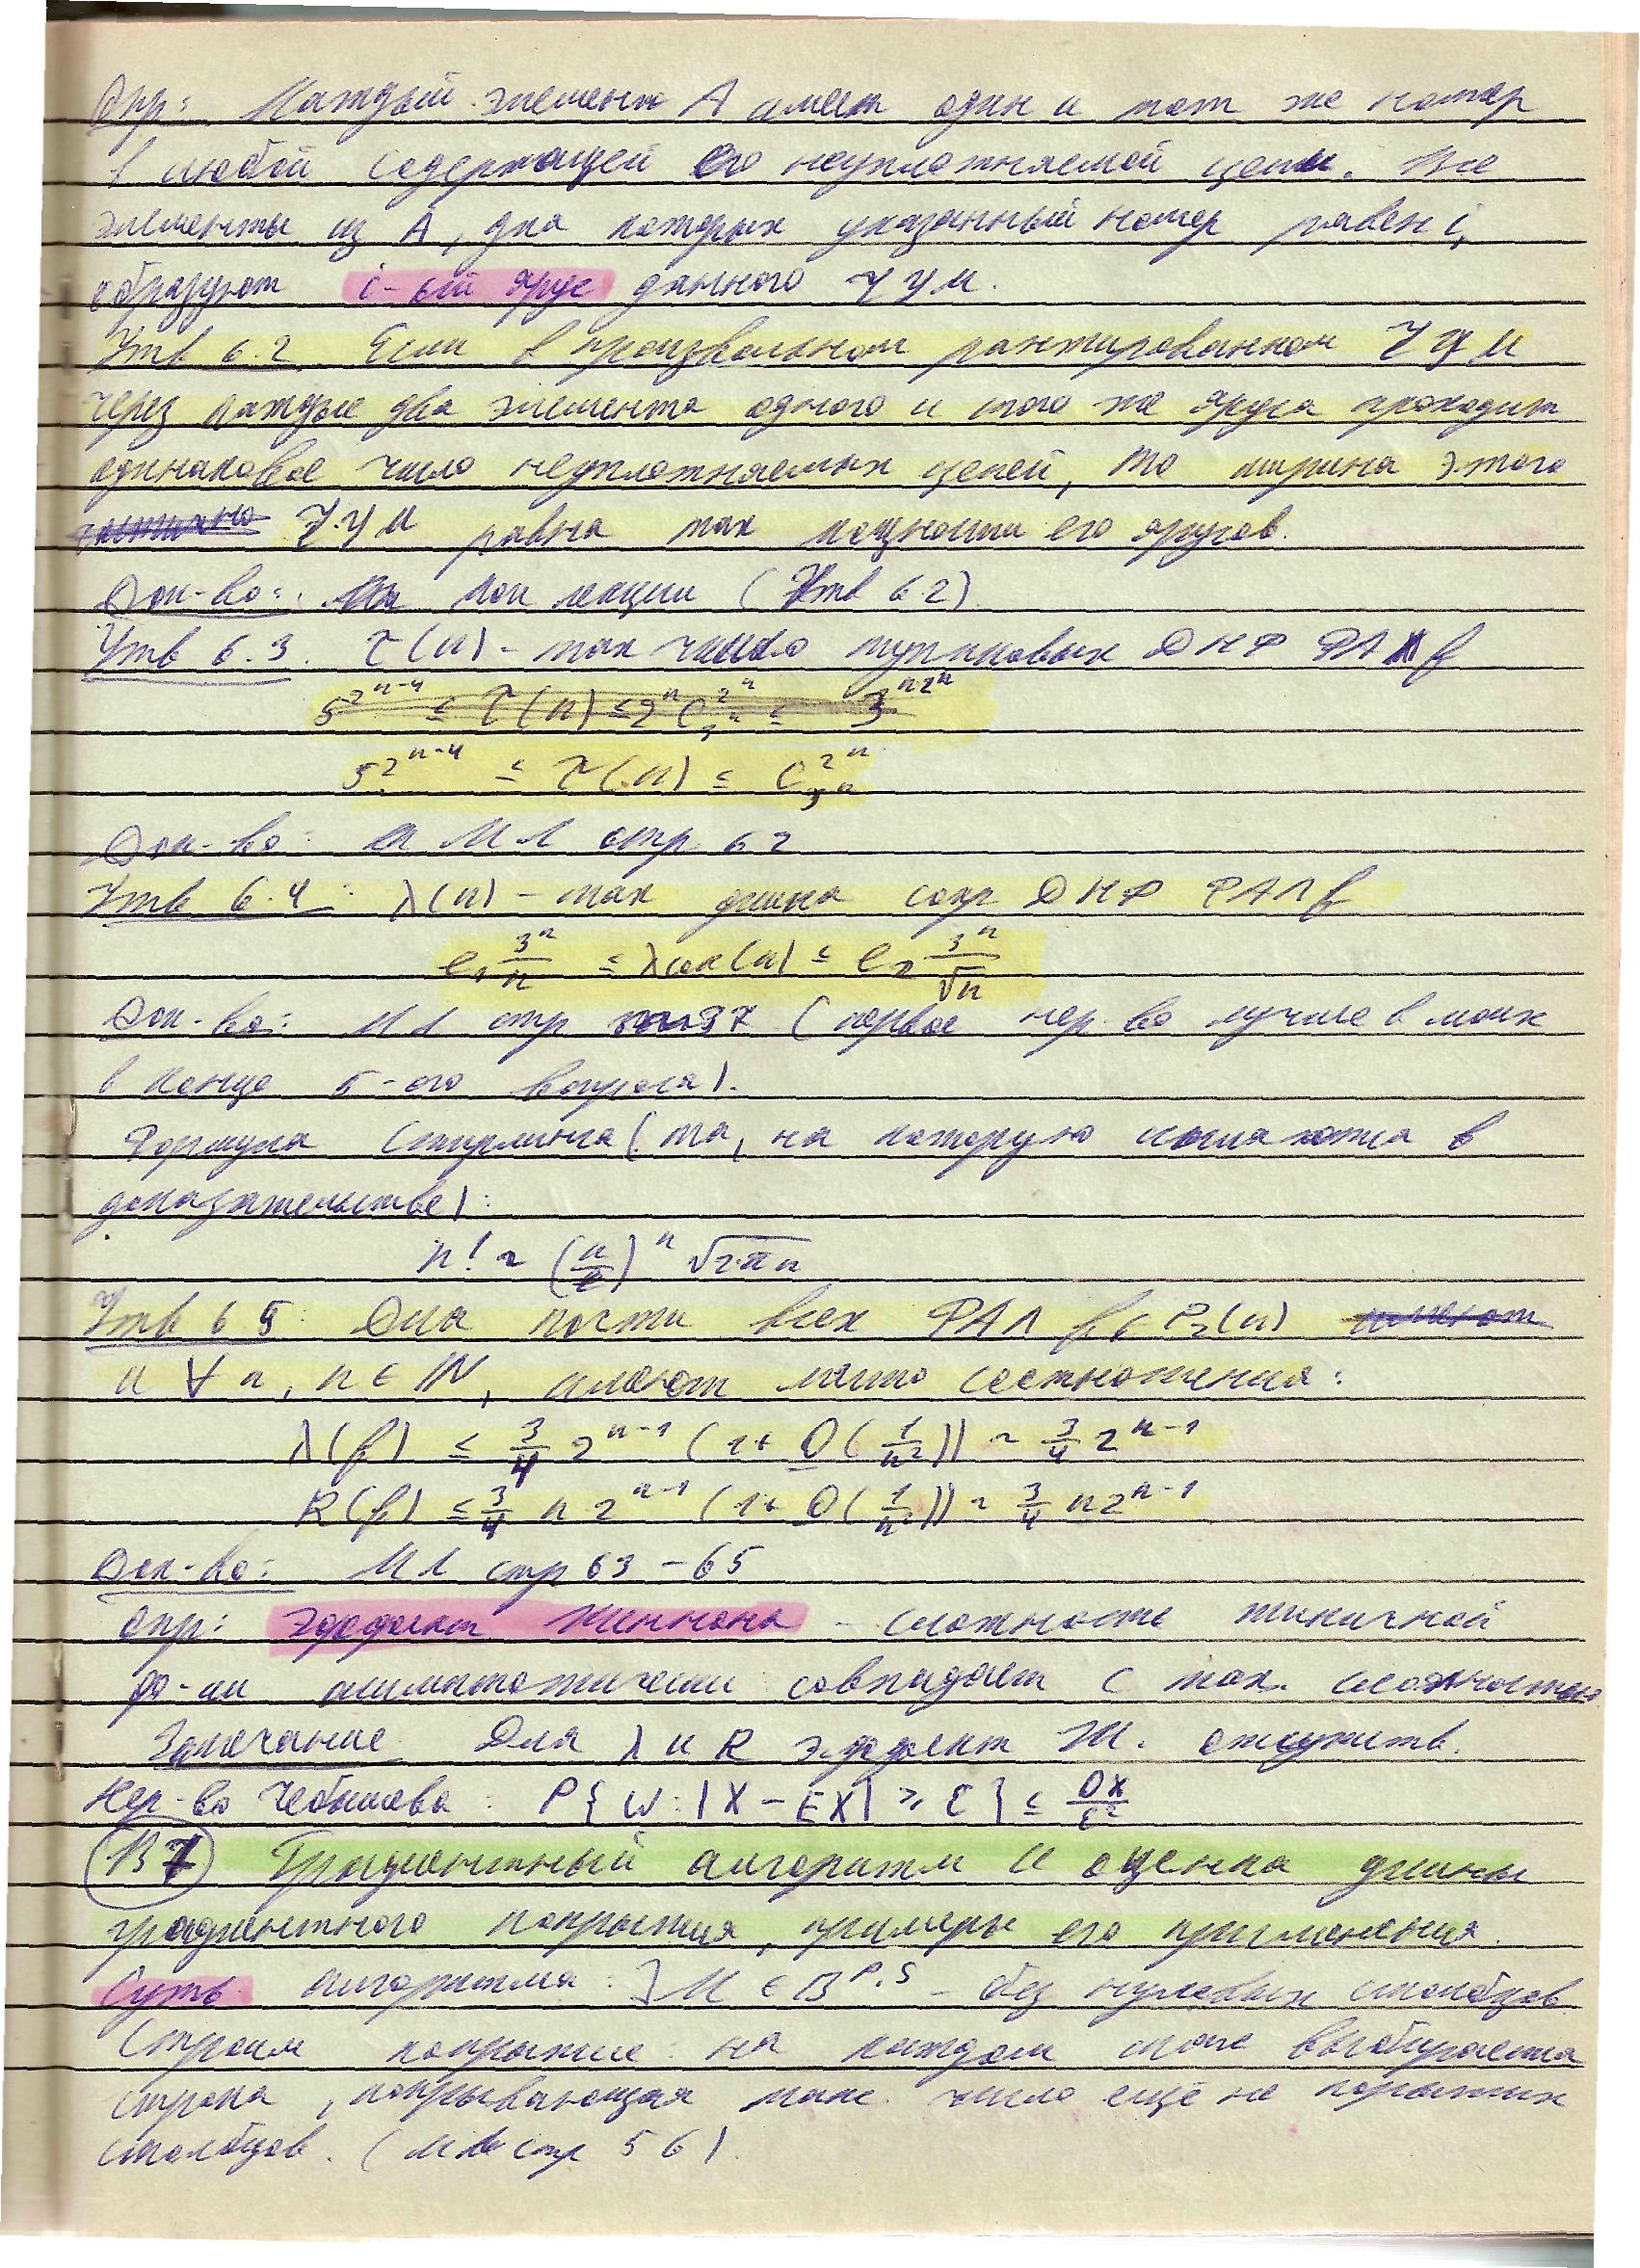 Опр: Каждый элемент A имеет один и тот же номер
в любой содержащей его неуплотняемой цепи. Все
элементы из A, для которых указанный номер равен i,
образуют i-ый ярус данного ЧУМ.
Утв 6.2. Если в произвольном ранжированном ЧУМ
через каждые два элемента одного и того же яруса проходит
одинаковое число неуплотняемых цепей, то ширина этого
ЧУМ равна max мощности его ярусов.
Док-во: лекции (Утв 6.2)
Утв 6.3. τ(n) - max число тупиковых ДНФ ФАЛ f
5^{2^{n-4}} ≤ τ(n) ≤ 2^n C_{3^n}^{2^n} ≤ 3^{n·2^n}
5^{2^{n-4}} ≤ τ(n) ≤ C_{3^n}^{2^n}
Док-во: МЛ стр 62
Утв 6.4: λ(n) - max длина сокр ДНФ ФАЛ f
c_1 3^n/n ≤ λсок(n) ≤ c_2 3^n/√n
Док-во: МЛ стр 37 (первое нер-во лучше в моих
в конце 5-ого вопроса).
Формула Стирлинга (та, на которую ссылка в
доказательстве):
n! ~ (n/e)^n √2πn
Утв 6.5: Для почти всех ФАЛ f ∈ P_2(n)
и ∀ n, n ∈ ℕ, имеют место соотношения:
λ(f) ≤ 3/4 2^{n-1} (1+ O(1/n²)) ~ 3/4 2^{n-1}
R(f) ≤ 3/4 n 2^{n-1} (1+ O(1/n²)) ~ 3/4 n2^{n-1}
Док-во: МЛ стр 63-65
Опр: Эффект Шеннона - сложность типичной
ф-ии асимптотически совпадает с max. сложностью
Замечание Для λ и R эффект Ш. отсутств.
Нер-во Чебышева: P{ω:|X-EX| ≥ ε} ≤ DX/ε²
В7 Градиентный алгоритм и оценка длины
градиентного покрытия, примеры его применения.
Суть алгоритма: ] M ∈ B^{p,s} - без нулевых столбцов
Строим покрытие: на каждом шаге выбирается
строка, покрывающая макс. число ещё не покрытых
столбцов. (МЛ стр 56)